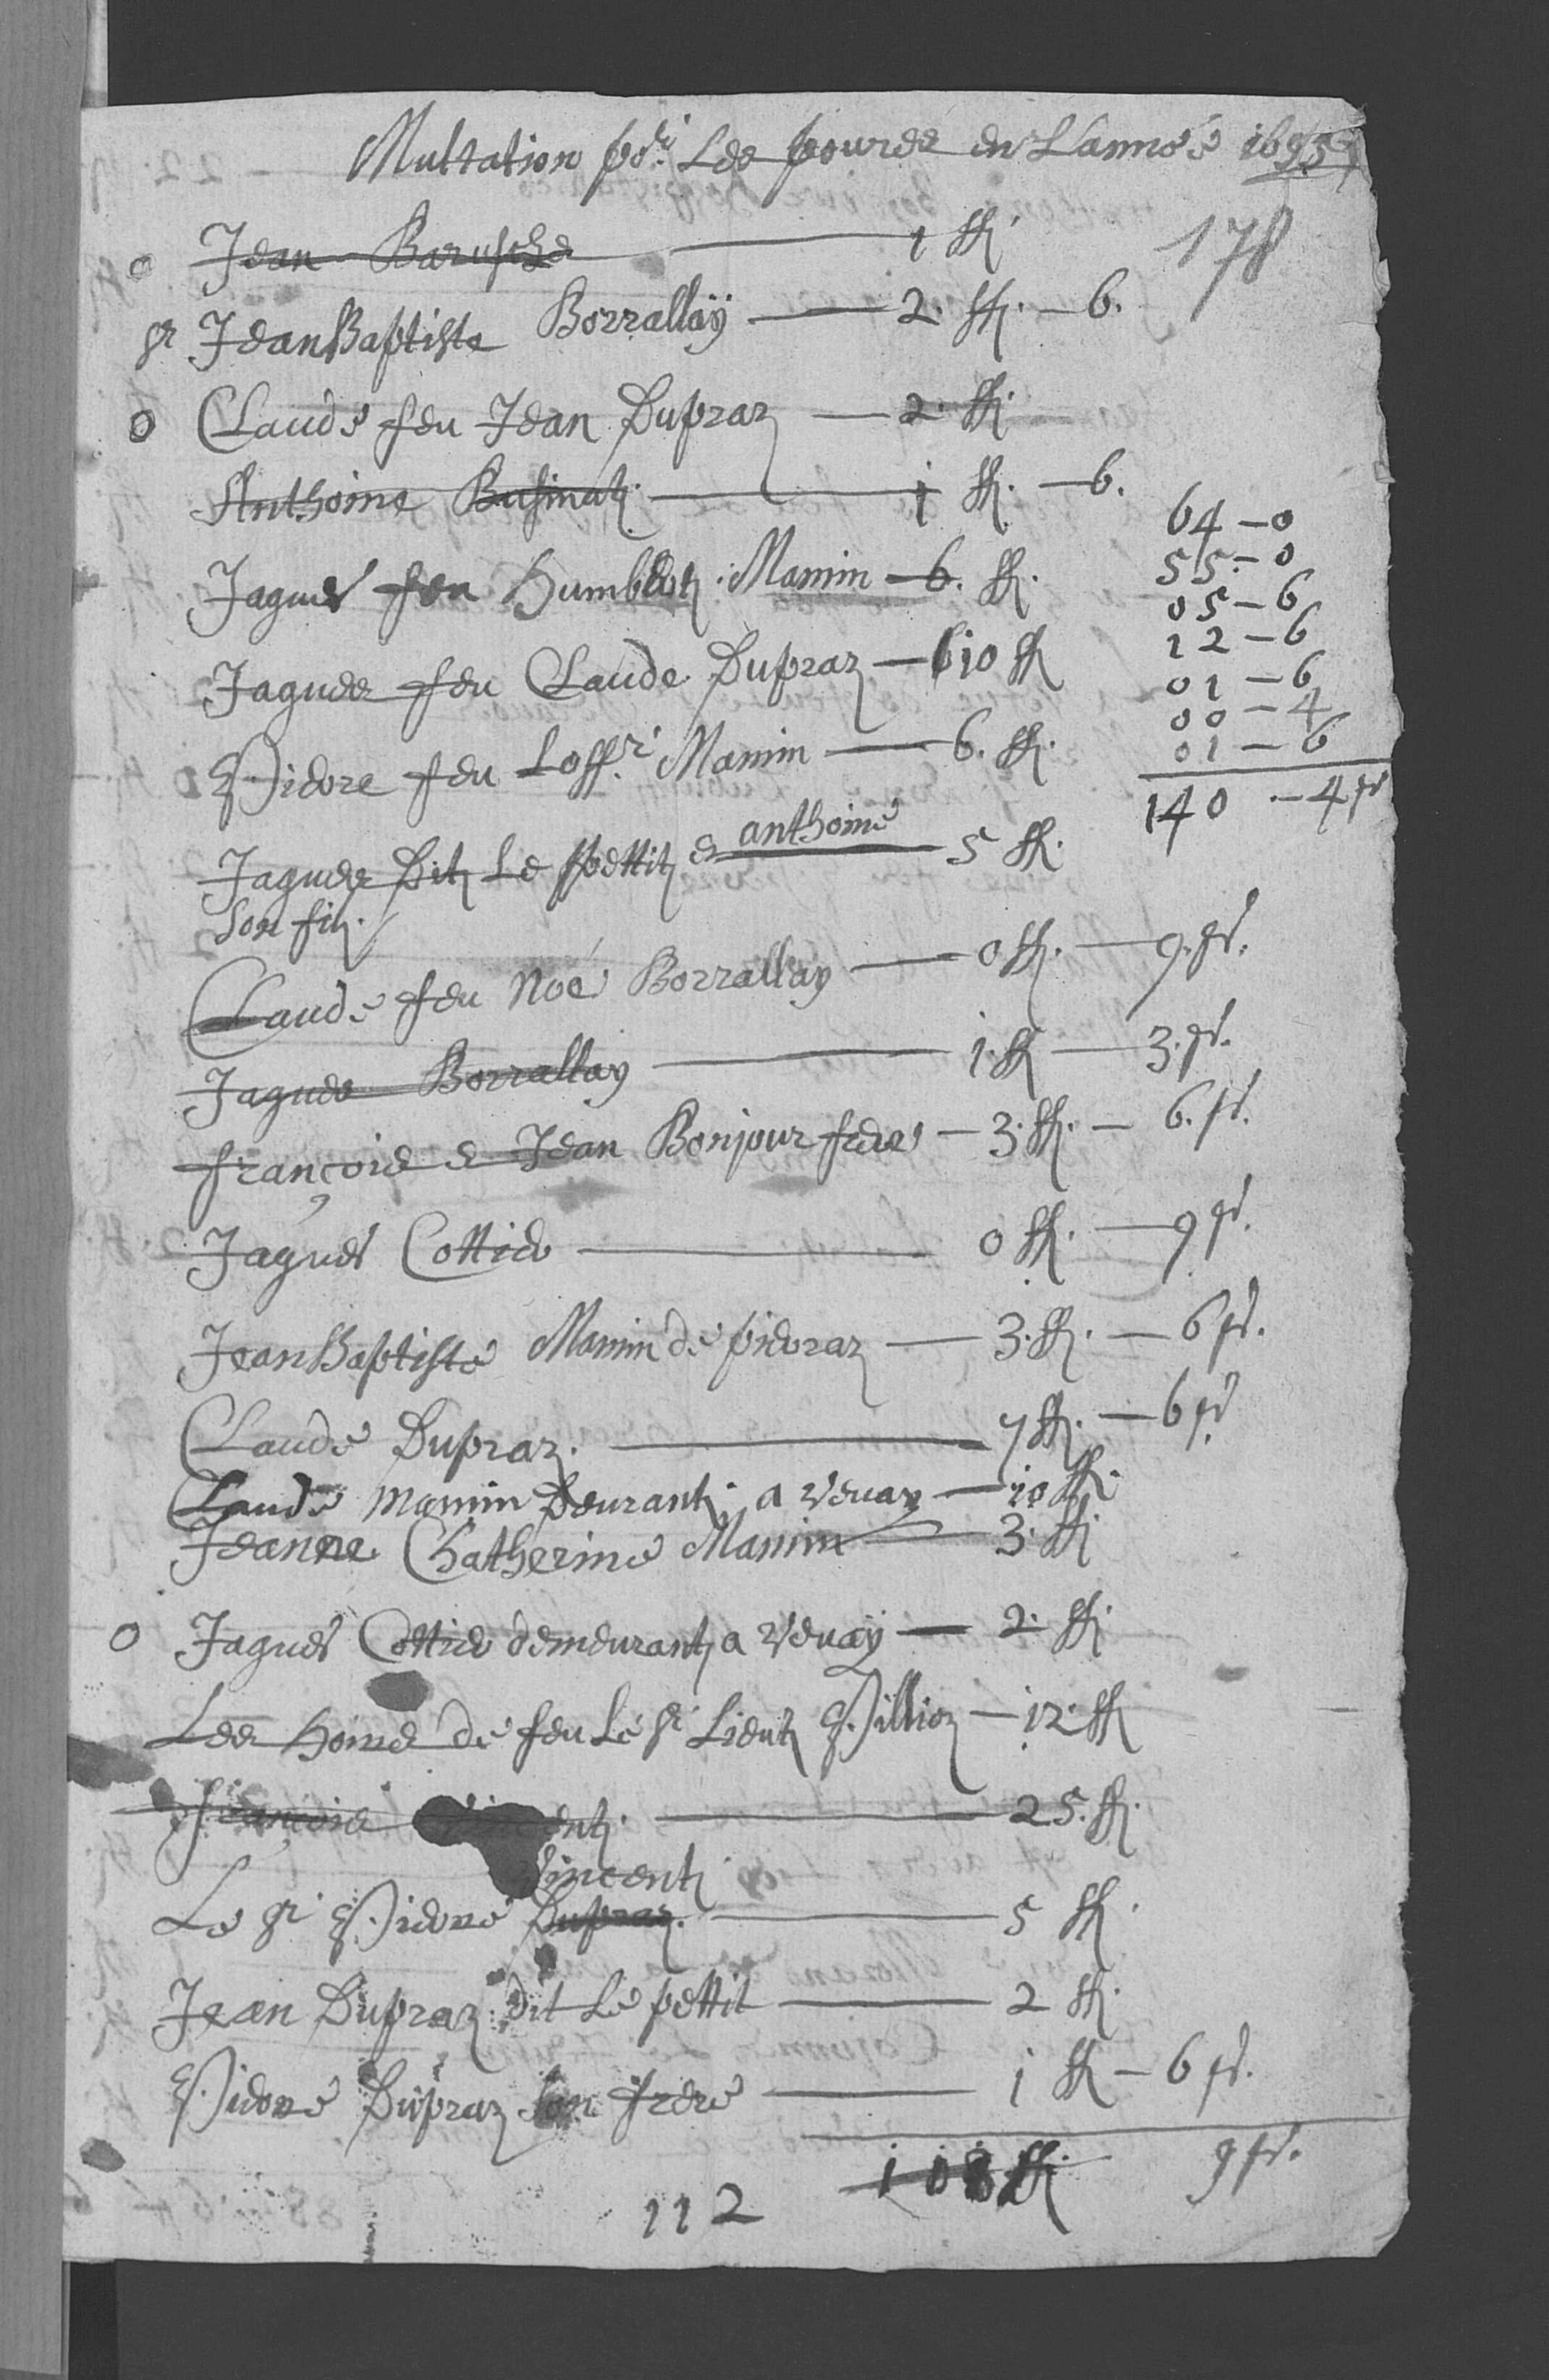 Multation po.r Les poures en L'année 1695
178
o Jean Barusche — 1 ff
gr Jean Baptiste Borrallaÿ — 2. ff. — 6.
o Claude feu Jean Dupraz — 2. ff.
Anthoine Businatz. — 1 ff. — 6.
Jaques feu Humbertz Manin — 6. ff.
Jaques feu Claude Dupraz — 10 ff
Pierre feu Loff.r Manin — 6. ff.
Jaques Ditz Le pettitz e anthoine — 5 ff.
son filz.
Claude feu Noé Borrallay — 0 ff. — 9. gr.
Jaques Borrallay — 1. ff — 3. gr.
françois e Jean Bonjour freres — 3. ff. — 6. gr.
Jaques Cottier — 0 ff. — 9 gr.
Jean Baptiste Manin de pieraz — 3. ff. — 6 gr.
Claude Dupraz. — 7 ff. — 6 gr
Claude Manin Deurantz a Veuay — 10 ff.
Jeanne Chatherine Manin — 3. ff
o Jaques Cottier demeurantz a Veuaÿ — 2. ff
Les hoirs de feu Le sr Lieutz Pillioz — 12. ff
françois Vincentz. — 25. ff.
Vincentz
Le sr Pierre Dupraz. — 5 ff.
Jean Dupraz dit Le pettit — 2 ff.
Pierre Dupraz son frere — 1 ff — 6 gr.
108 ff. 9 gr.
112
64 — 0
55 — 0
05 — 6
12 — 6
01 — 6
00 — 4
01 — 6
140 — 4 gr